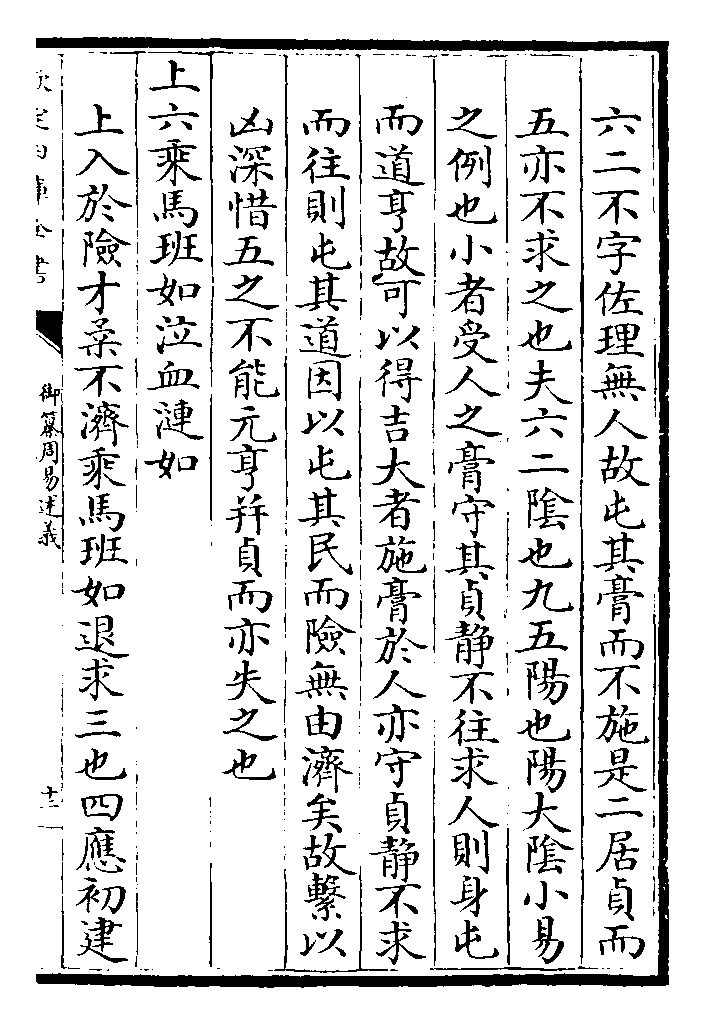 六二不字佐理無人故屯其膏而不施是二居貞而
五亦不求之也夫六二陰也九五陽也陽大陰小易
之例也小者受人之膏守其貞静不往求人則身屯
而道亨故可以得吉大者施膏於人亦守貞静不求
而往則屯其道因以屯其民而險無由濟矣故繫以
凶深惜五之不能元亨并貞而亦失之也
上六乘馬班如泣血漣如
上入於險才柔不濟乘馬班如退求三也四應初建
欽定四庫全書
御纂周易述義
十二